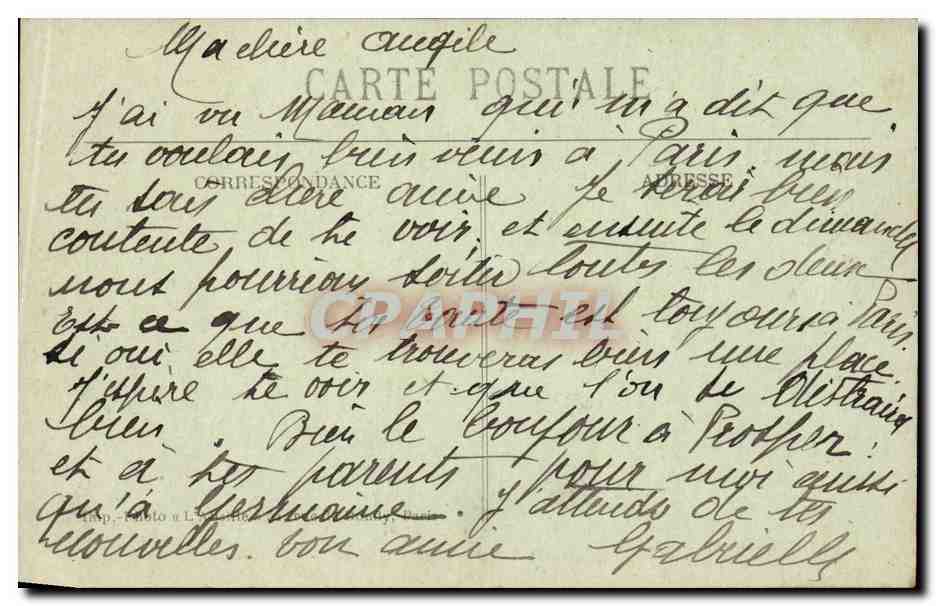 Ma chère Angèle
CARTE POSTALE
J'ai vu Maman qui m'a dit que
tu voulais bien venir à Paris. mais
CORRESPONDANCE
ADRESSE
tu sais chère amie Je serai bien
contente de te voir, et ensuite le dimanche
nous pourrions sortir toutes les deux
CPAPHIL
Est ce que ta tante est toujours à Paris.
si oui elle te trouveras bien une place.
J'espère te voir et que l'on se distraira
bien. Bien le bonjour à Prosper.
et à tes parents pour moi aussi
qu'à Germaine. J'attends de tes
Imp.-Photo Paris
nouvelles. ton amie Gabrielle